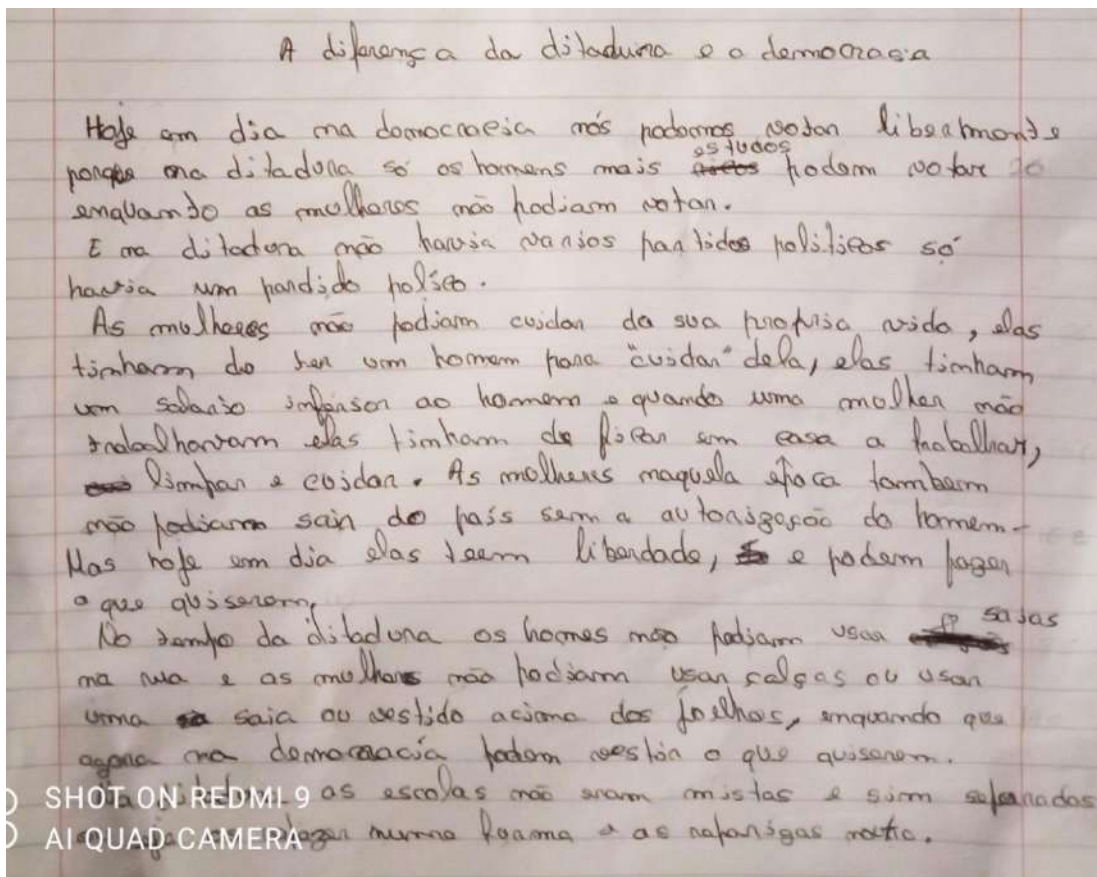 A diferença da ditadura e a democracia
Hoje em dia na democracia nós podemos votar liberlmente
porque na ditadura só os homens mais estudos podem votar
enquando as mulheres não podiam votar.
E na ditadura não havia varios partidos politicos só
havia um pardido políco.
As mulheres não podiam cuidar da sua propria vida, elas
tinham de ter um homem para "cuidar" dela, elas tinham
um salario inferior ao homem e quando uma mulher não
trabalhavam elas tinham de ficar em casa a trabalhar,
limpar e cuidar. As mulheres naquela epoca tambem
não podiam sair do país sem a autorização do homem.
Mas hoje em dia elas teem liberdade, e podem fazer
o que quiserem.
No tempo da ditadura os homes não podiam usar saias
na rua e as mulheres não podiam usar calças ou usar
uma saia ou vestido acima dos joelhos, enquando que
agora na democracia podem vestir o que quiserem.
as escolas não eram mistas e sim separadas
numa forma e as raparigas noutro.
SHOT ON REDMI 9
AI QUAD CAMERA